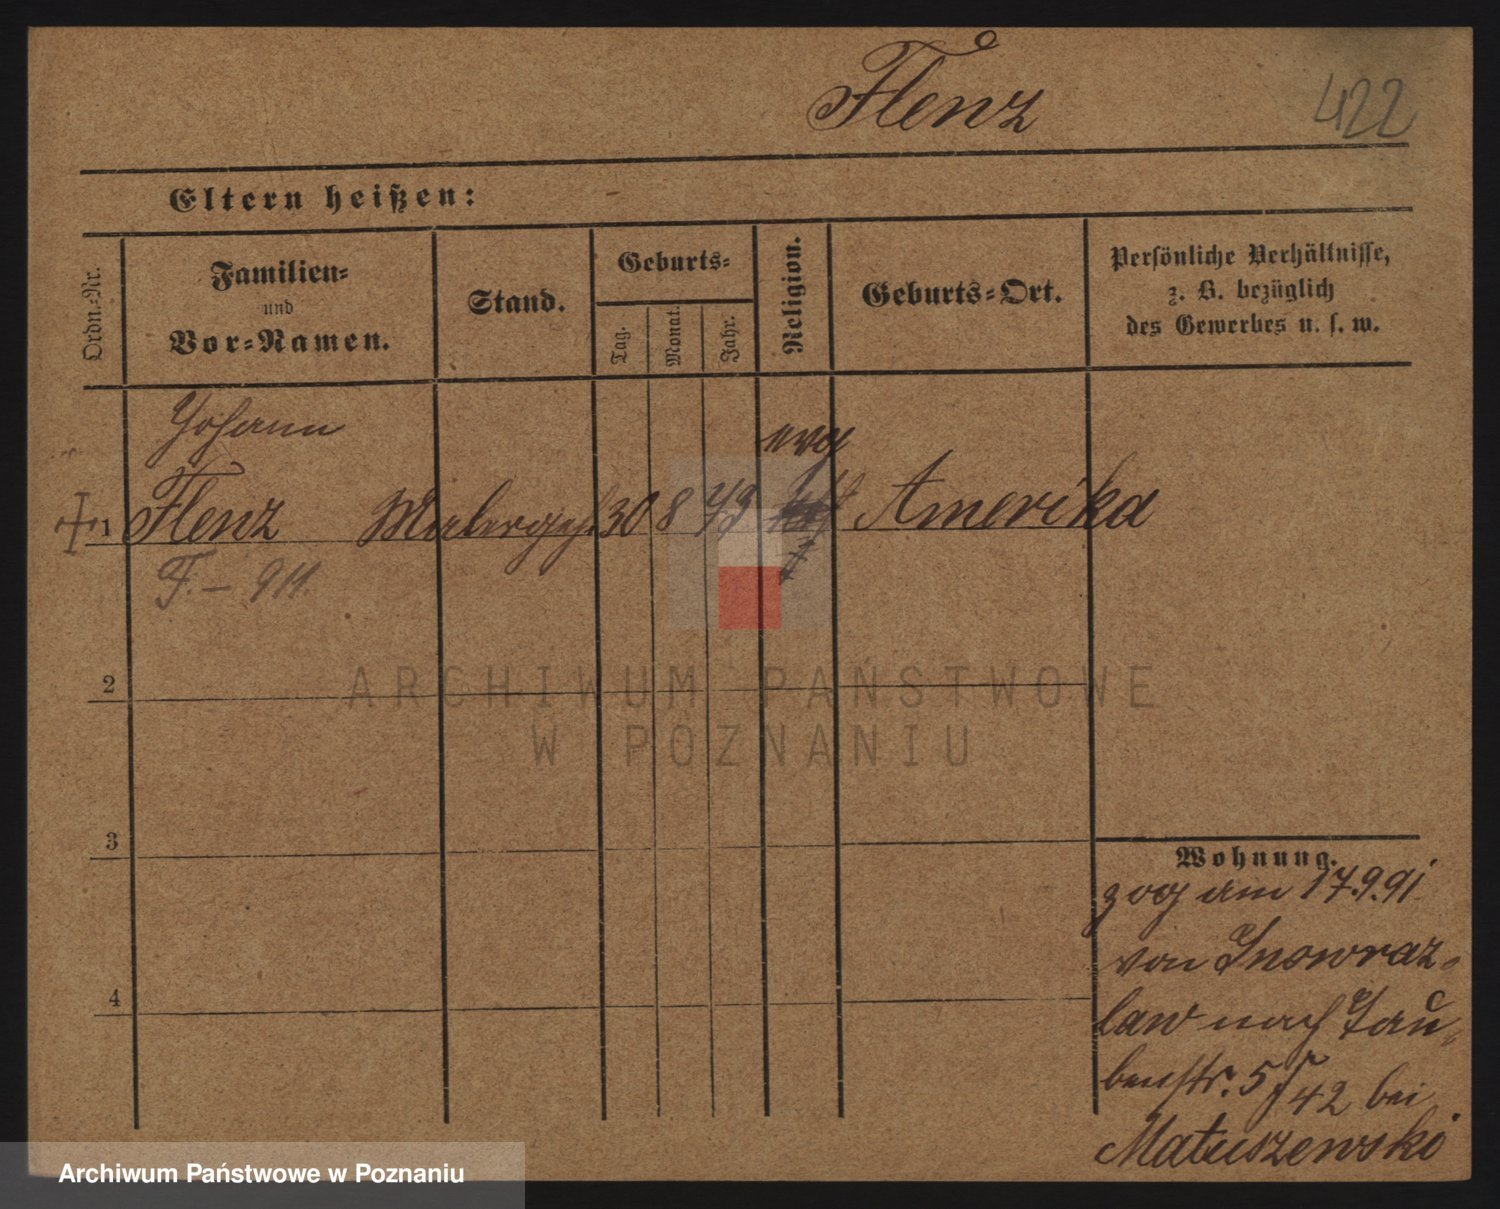 Flenz
422
Eltern heißen:
Ordn.-Nr.
Familien-
und
Vor-Namen.
Stand.
Geburts-
Tag.
Monat.
Jahr.
Religion.
Geburts-Ort.
Persönliche Verhältnisse,
z. B. bezüglich
des Gewerbes u. s. w.
Johann
evg
1 Flenz Malergeh. 30 8 73 Amerika
F. – 911.
2
3
4
Wohnung.
zog am 17.9.91
von Inowraz-
law nach Tau-
benstr. 5/42 bei
Matuszewski
ARCHIWUM PAŃSTWOWE
W POZNANIU
Archiwum Państwowe w Poznaniu